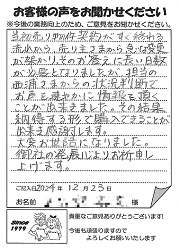 お客様の声をお聞かせください
※今後の業務向上のため、ご意見をお聞かせください。
当初売り物件契約がすぐ終わる
流れから、売り主さまから急な変更
が掛かり、その答えに長い日数
が必要となりましたが、担当の
西浦さまからの状況判断で
お声と、速やかに情報を頂く
ことが出来ました。その結果
納得する形で購入できることが
出来き感謝します。
大変お世話になりました。
御社の発展心よりお祈り申し
上げます。
ご記入日2024年12月23日
お名前
様
Since
1999
貴重なご意見ありがとうございます!
今後も頑張りますので
よろしくお願いいたします